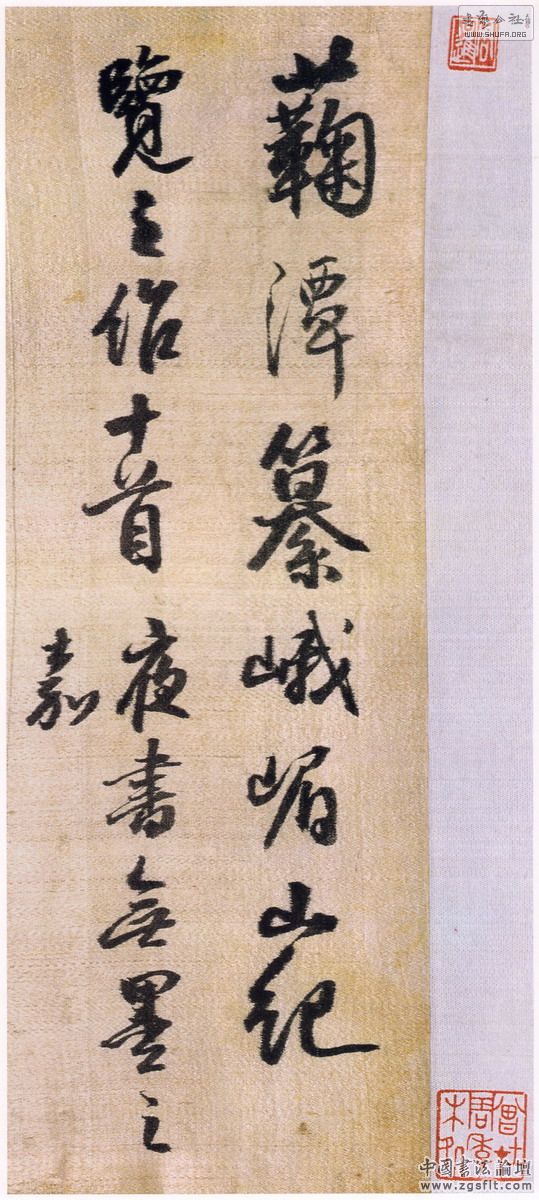 蘜潭纂峨嵋山紀
覽之十首夜書無墨之
嘉
WWW.SHUFA.ORG
中國書法論壇
www.zgsflt.com